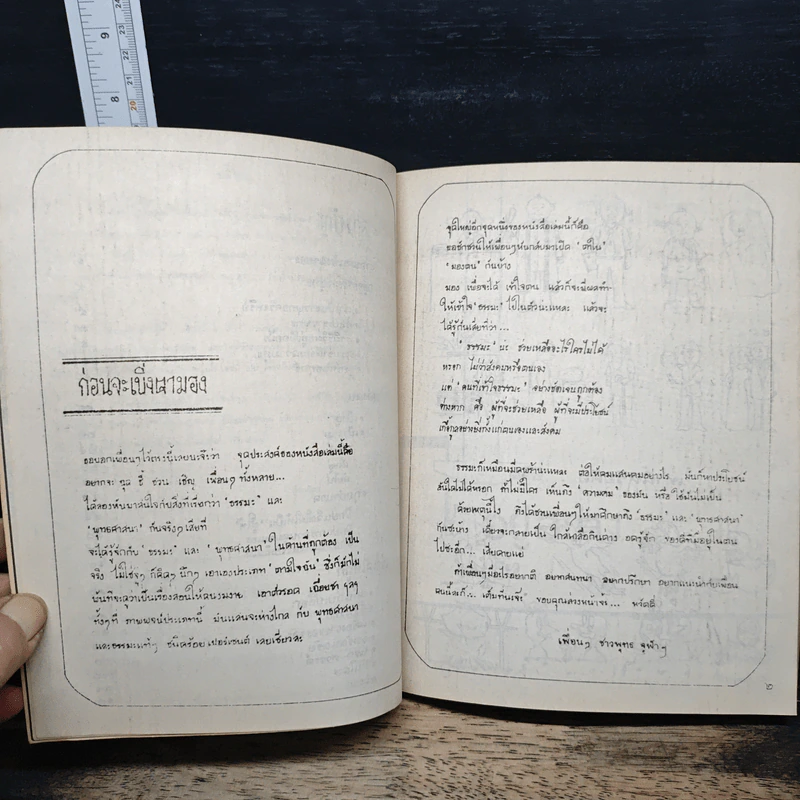 9
8
24
23
22
21
20
ก่อนจะเบิ่งตามอง
ขอบอกเพื่อนๆไว้ตรงนี้เลยนะจ๊ะว่า จุดประสงค์ของหนังสือเล่มนี้คือ
อยากจะ จูง ชี้ ชวน เชิญ เพื่อนๆ ทั้งหลาย...
ได้ลองหันมาสนใจกับสิ่งที่เรียกว่า 'ธรรมะ' และ
'พุทธศาสนา' กับจริงๆเสียที
จะได้รู้จักกับ 'ธรรมะ' และ 'พุทธศาสนา' ในด้านที่ถูกต้อง เป็น
จริง ไม่ใช่จู่ๆ ก็คิดๆ นึกๆ เอาเองประเภท 'ตามใจฉัน' ซึ่งก็มักไม่
พ้นที่จะคว้าเป็นเรื่องสอนให้คนงมงาย เอาตัวรอด เฉื่อยชา ฯลฯ
ทั้งๆที่ ภาพพจน์ประเภทนี้ มันแสนจะห่างไกล กับ พุทธศาสนา
และธรรมะแท้ๆ ชนิดร้อย เปอร์เซนต์ เลยเชียวละ
จุดใหญ่อีกจุดหนึ่งของหนังสือเล่มนี้ก็คือ
ขอชักชวนให้เพื่อนๆหันกลับมาเปิด 'ตาใน'
'มองตน' กันบ้าง
มอง เพื่อจะได้ เข้าใจตน แล้วก็จะมีผลทำ
ให้เข้าใจ 'ธรรมะ' ไปในตัวน่ะแหละ แล้วจะ
ได้รู้กันเสียทีว่า...
'ธรรมะ' น่ะ ช่วยเหลืออะไรใครไม่ได้
หรอก ไม่ว่าสังคมหรือตนเอง
แต่ 'คนที่เข้าใจธรรมะ' อย่างชัดเจนถูกต้อง
ต่างหาก คือ ผู้ที่จะช่วยเหลือ ผู้ที่จะมีประโยชน์
เกื้อกูลอย่างยิ่งทั้งแก่ตนเองและสังคม
ธรรมะก็เหมือนมีดพร้าน่ะแหละ ต่อให้คมแสนคมอย่างไร มันก็หาประโยชน์
อันใดไม่ได้หรอก ถ้าไม่มีใคร เห็นถึง "ความคม" ของมัน หรือ ใช้มันไม่เป็น
ด้วยเหตุนี้ไง จึงได้ชวนเพื่อนๆให้มาศึกษาถึง 'ธรรมะ' และ 'พุทธศาสนา'
กันซะบ้าง เดี๋ยวจะกลายเป็น ใกล้เกลือกินด่าง อดรู้จัก ของดีที่มีอยู่ในตน
ไปซะอีก... เสียดายแย่
ถ้าเพื่อนๆมีอะไรอยากติ อยากสนทนา อยากปรึกษา อยากแนะนำ
ขอบคุณล่วงหน้าจ้ะ... หวัดดี
เพื่อนๆ ชาวพุทธ จุฬาฯ